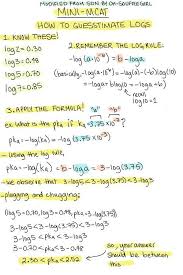 MODIFIED FROM SDN BY DR-SOUFFLEGIRL
MINI-MCAT
HOW TO GUESSTIMATE LOGS
1. KNOW THESE!
log 2 = 0.30
log 3 = 0.48
log 5 = 0.70
log 7 = 0.85
2. REMEMBER THE LOG RULE:
-log(a·10⁻ᵇ) = b - log a
near, log10 = 1
3. APPLY THE FORMULA!
"a" "b"
ex. what is the pka if ka = 3.75 x10⁻³?
pka = -log(ka) = -log(3.75 x10⁻³)
- using the log rule,
pka = -log(ka) = b - log a = 3 - log(3.75)
- we observe that 3 - log 5 < 3 - log(3.75) < 3 - log 3
- plugging and chugging:
log 5 = 0.70, log 3 = 0.48, pka = 3 - log(3.75)
3 - log 5 < 3 - log(3.75) < 3 - log 3
3 - log 5 < pka < 3 - log 3
3 - 0.70 < pka < 3 - 0.48
2.30 < pka < 2.52
so, your answer
should be between
this